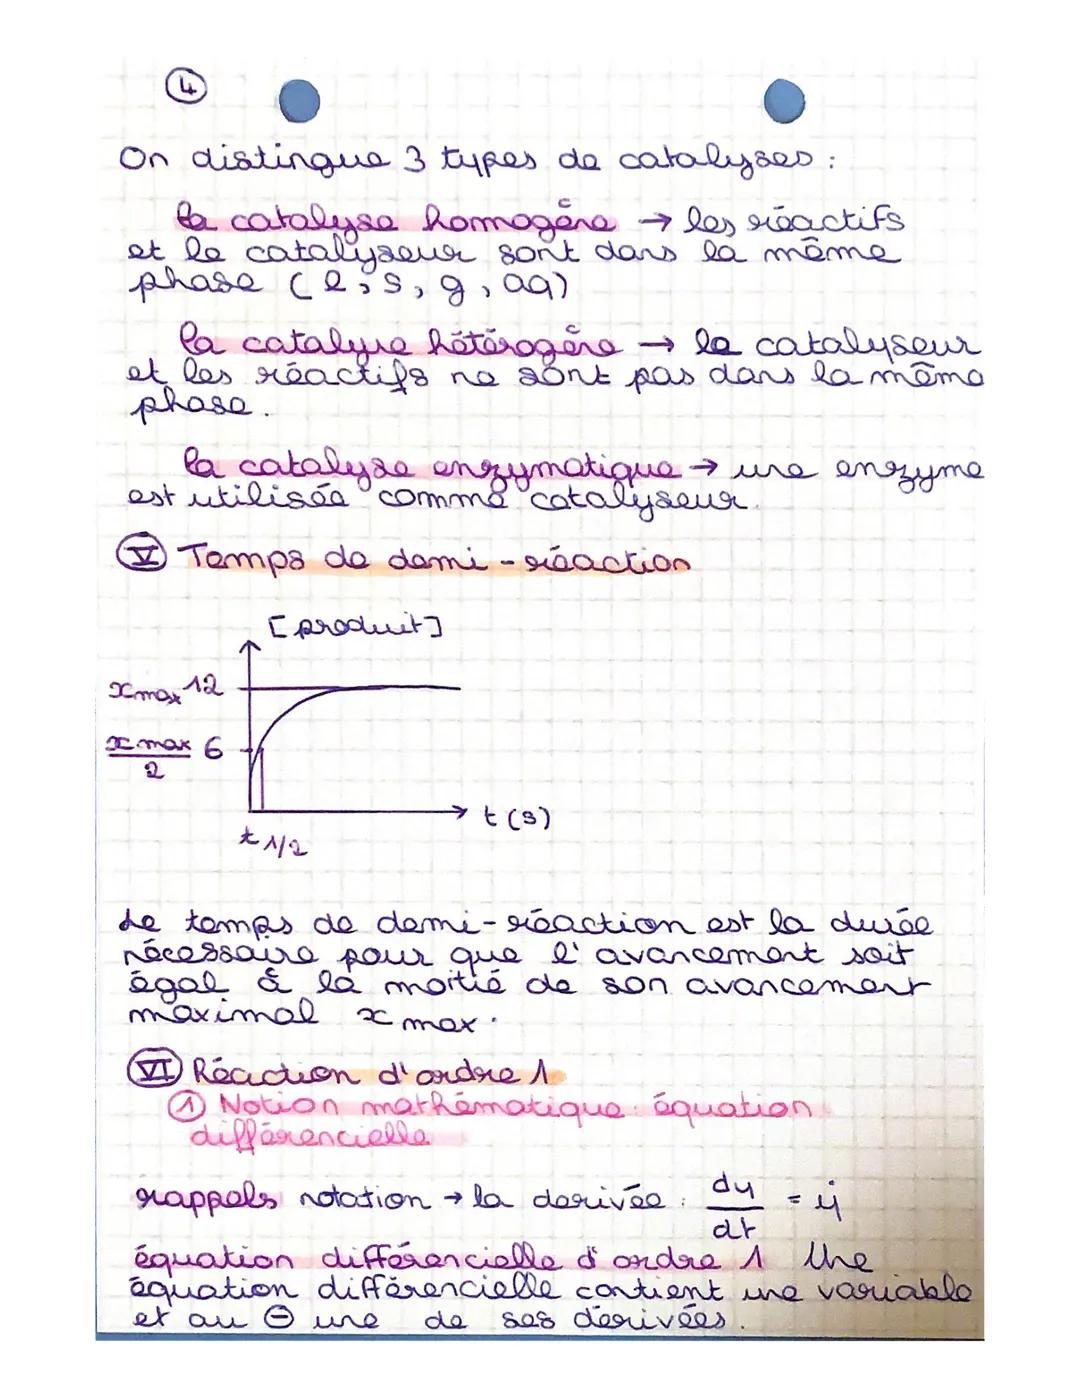 4
On distingue 3 types de catalyses :
la catalyse homogène → les réactifs
et le catalyseur sont dans la même
phase (l, s, g, aq)
la catalyse hétérogène → le catalyseur
et les réactifs ne sont pas dans la même
phase.
la catalyse enzymatique → une enzyme
est utilisée comme catalyseur.
V Temps de demi-réaction
[produit]
xmax 12
x max/2 6
t (s)
t 1/2
Le temps de demi-réaction est la durée
nécessaire pour que l'avancement soit
égal à la moitié de son avancement
maximal x max.
VI Réaction d'ordre 1
1 Notion mathématique : équation
différencielle
rappels notation → la derivée : dy/dt = ẏ
équation différencielle d'ordre 1 Une
équation différencielle contient une variable
et au ⊖ une de ses dérivées.